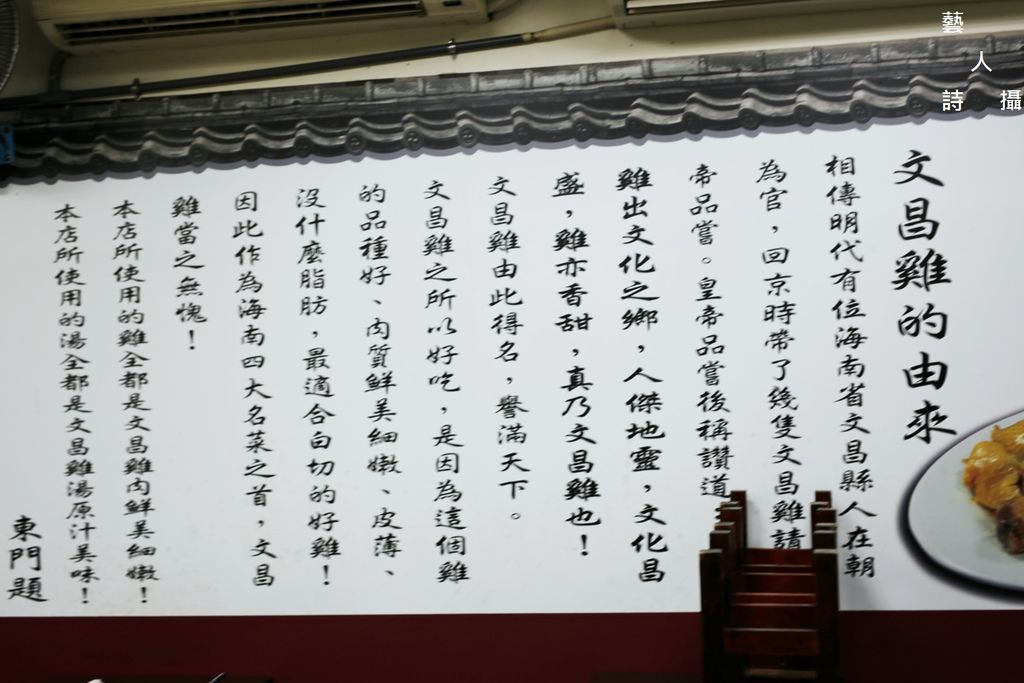 文昌雞的由來
相傳明代有位海南省文昌縣人在朝
為官，回京時帶了幾隻文昌雞請
帝品嘗。皇帝品嘗後稱讚道
雞出文化之鄉，人傑地靈，文化昌
盛，雞亦香甜，真乃文昌雞也！
文昌雞由此得名，譽滿天下。
文昌雞之所以好吃，是因為這個雞
的品種好、肉質鮮美細嫩、皮薄、
沒什麼脂肪，最適合白切的好雞！
因此作為海南四大名菜之首，文昌
雞當之無愧！
本店所使用的雞全都是文昌雞肉鮮美細嫩！
本店所使用的湯全都是文昌雞湯原汁美味！
東門題
藝
人
詩 攝